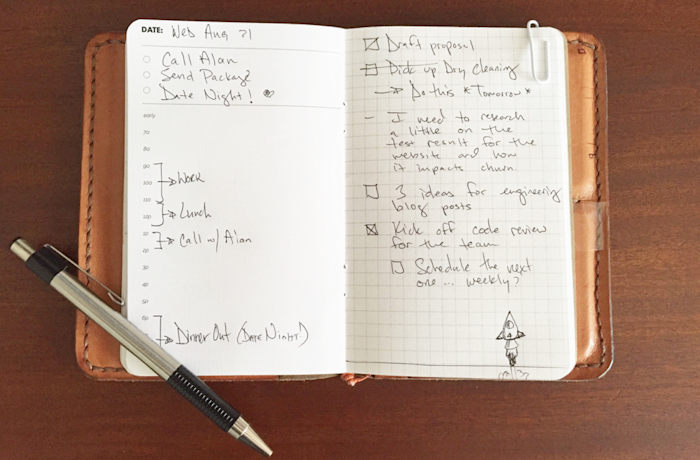 DATE: Wed Aug 21
Call Alan
Send Package
Date Night!
early
70
80
90
100
→ Work
110
→ Lunch
100
10
→ Call w/ Alan
20
30
40
50
60
→ Dinner Out (Date Night!)
Draft proposal
Pick up Dry Cleaning
→ Do this *Tomorrow*
- I need to research
a little on the
test result for the
website and how
it impacts churn.
3 ideas for engineering
blog posts
Kick off code review
for the team
Schedule the next
one... weekly?